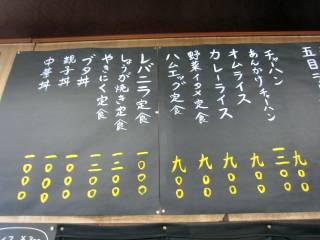 五目
チャーハン 九〇〇
あんかけチャーハン 一三〇〇
オムライス 九〇〇
カレーライス 九〇〇
野菜イタメ定食 九〇〇
ハムエッグ定食 九〇〇
レバニラ定食 一〇〇〇
しょうが焼き定食 一一〇〇
やきにく定食 一二〇〇
ブタ丼 一〇〇〇
親子丼 一〇〇〇
中華丼 一〇〇〇